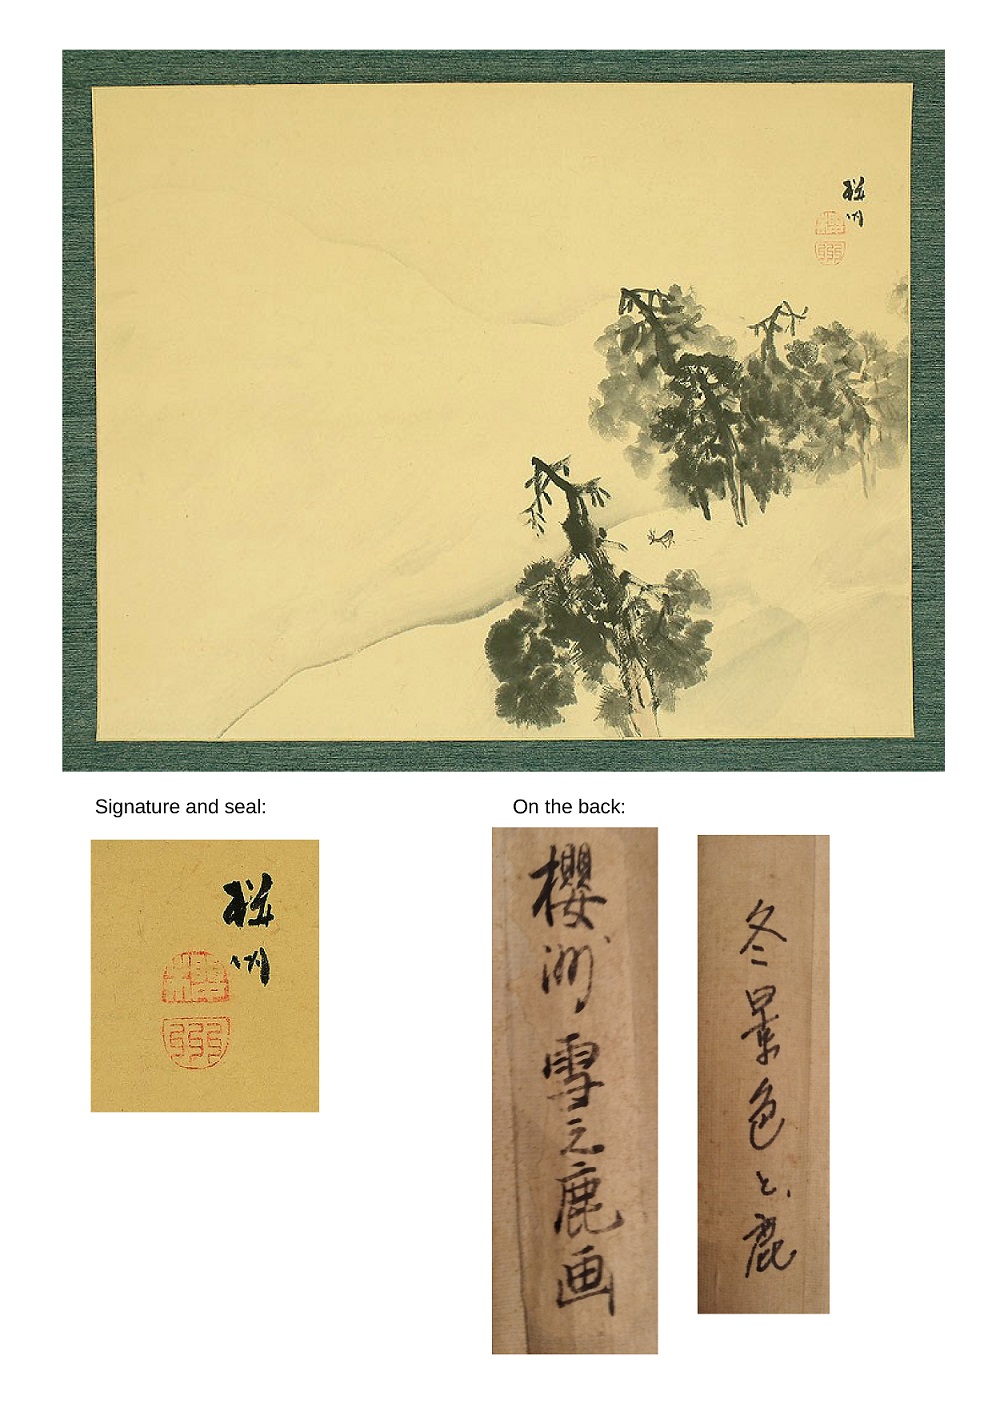 Signature and seal:
On the back:
櫻洲 雪之鹿画
冬景色と鹿